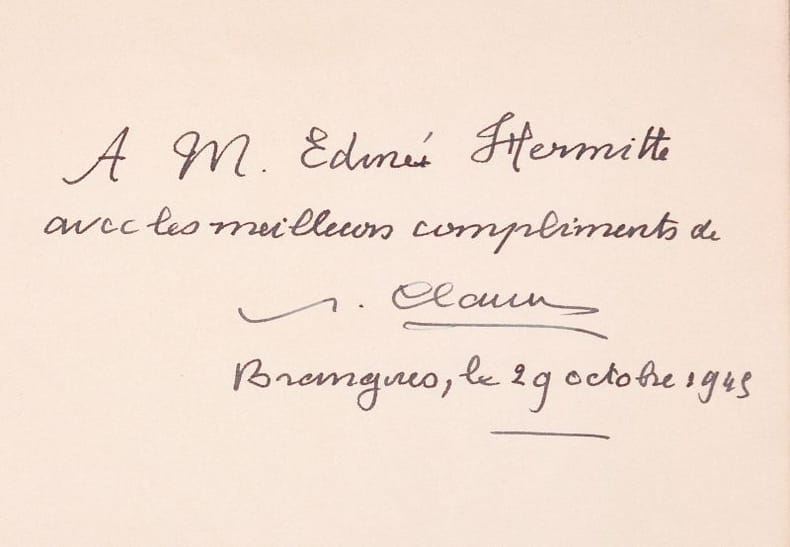 A M. Edmée Hermitte
avec les meilleurs compliments de
Brangues, le 29 octobre 1945